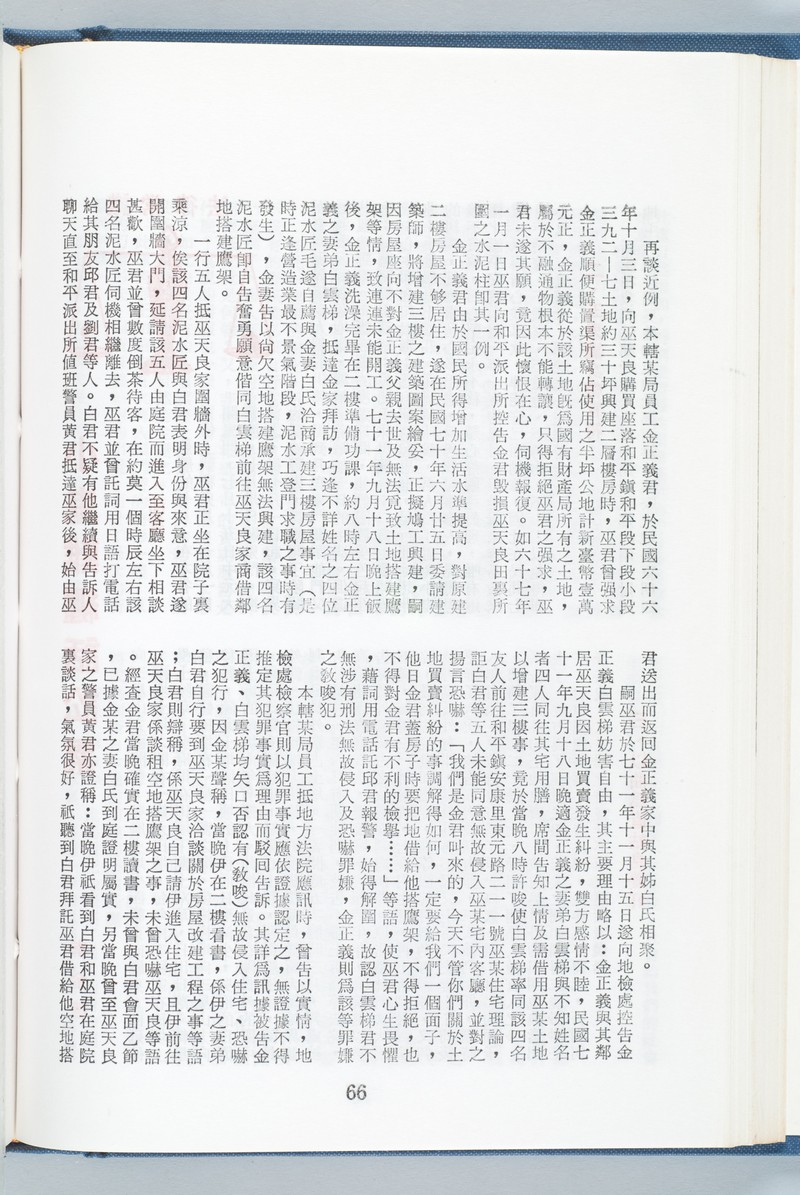 再談近例，本轄某局員工金正義君，於民國六十六
年十月三日，向巫天良購買座落和平鎭和平段下段小段
三九二—七土地約三十坪興建二層樓房時，巫君曾强求
金正義順便購置渠所竊佔使用之半坪公地計新臺幣壹萬
元正，金正義從於該土地旣爲國有財產局所有之土地，
屬於不融通物根本不能轉讓，只得拒絕巫君之强求，巫
君未遂其願，竟因此懷恨在心，伺機報復。如六十七年
一月一日巫君向和平派出所控告金君毀損巫天良田裏所
圍之水泥柱卽其一例。
金正義君由於國民所得增加生活水準提高，對原建
二樓房屋不够居住，遂在民國七十年六月廿五日委請建
築師，將增建三樓之建築圖案繪妥，正擬鳩工興建，嗣
因房屋座向不對金正義父親去世及無法覓致土地搭建鷹
架等情，致連連未能開工。七十一年九月十八日晚上飯
後，金正義洗澡完畢在二樓準備功課，約八時左右金正
義之妻弟白雲梯，抵達金家拜訪，巧逢不詳姓名之四位
泥水匠毛遂自薦與金妻白氏洽商承建三樓房屋事宜（是
時正逢營造業最不景氣階段，泥水工登門求職之事時有
發生），金妻告以尙欠空地搭建鷹架無法興建，該四名
泥水匠卽自告奮勇願意偕同白雲梯前往巫天良家商借鄰
地搭建鷹架。
一行五人抵巫天良家圍牆外時，巫君正坐在院子裏
乘涼，俟該四名泥水匠與白君表明身份與來意，巫君遂
開圍牆大門，延請該五人由庭院而進入至客廳坐下相談
甚歡，巫君並曾數度倒茶待客，在約莫一個時辰左右該
四名泥水匠伺機相繼離去，巫君並曾託詞用日語打電話
給其朋友邱君及劉君等人。白君不疑有他繼續與告訴人
聊天直至和平派出所値班警員黃君抵達巫家後，始由巫
君送出而返回金正義家中與其姊白氏相聚。
嗣巫君於七十一年十一月十五日遂向地檢處控告金
正義白雲梯妨害自由，其主要理由略以：金正義與其鄰
居巫天良因土地買賣發生糾紛，雙方感情不睦，民國七
十一年九月十八日晚適金正義之妻弟白雲梯與不知姓名
者四人同往其宅用膳，席間告知上情及需借用巫某土地
以增建三樓事，竟於當晚八時許唆使白雲梯率同該四名
友人前往和平鎭安康里東元路二一一號巫某住宅理論，
詎白君等五人未能同意無故侵入巫某宅內客廳，並對之
揚言恐嚇：「我們是金君叫來的，今天不管你們關於土
地買賣糾紛的事調解得如何，一定要給我們一個面子，
他日金君蓋房子時要把地借給他搭鷹架，不得拒絕，也
不得對金君有不利的檢舉……」等語，使巫君心生畏懼
，藉詞用電話託邱君報警，始得解圍，故認白雲梯君不
無涉有刑法無故侵入及恐嚇罪嫌，金正義則爲該等罪嫌
之教唆犯。
本轄某局員工抵地方法院應訊時，曾告以實情，地
檢處檢察官則以犯罪事實應依證據認定之，無證據不得
推定其犯罪事實爲理由而駁回告訴。其詳爲訊據被告金
正義、白雲梯均矢口否認有（教唆）無故侵入住宅、恐嚇
之犯行，因金某聲稱，當晚伊在二樓看書，係伊之妻弟
白君自行要到巫天良家洽談關於房屋改建工程之事等語
；白君則辯稱，係巫天良自己請伊進入住宅，且伊前往
巫天良家係談租空地搭鷹架之事，未曾恐嚇巫天良等語
。經查金君當晚確實在二樓讀書，未曾與白君會面乙節
，已據金某之妻白氏到庭證明屬實，另當晚曾至巫天良
家之警員黃君亦證稱：當晚伊祇看到白君和巫君在庭院
裏談話，氣氛很好，祇聽到白君拜託巫君借給他空地搭
66